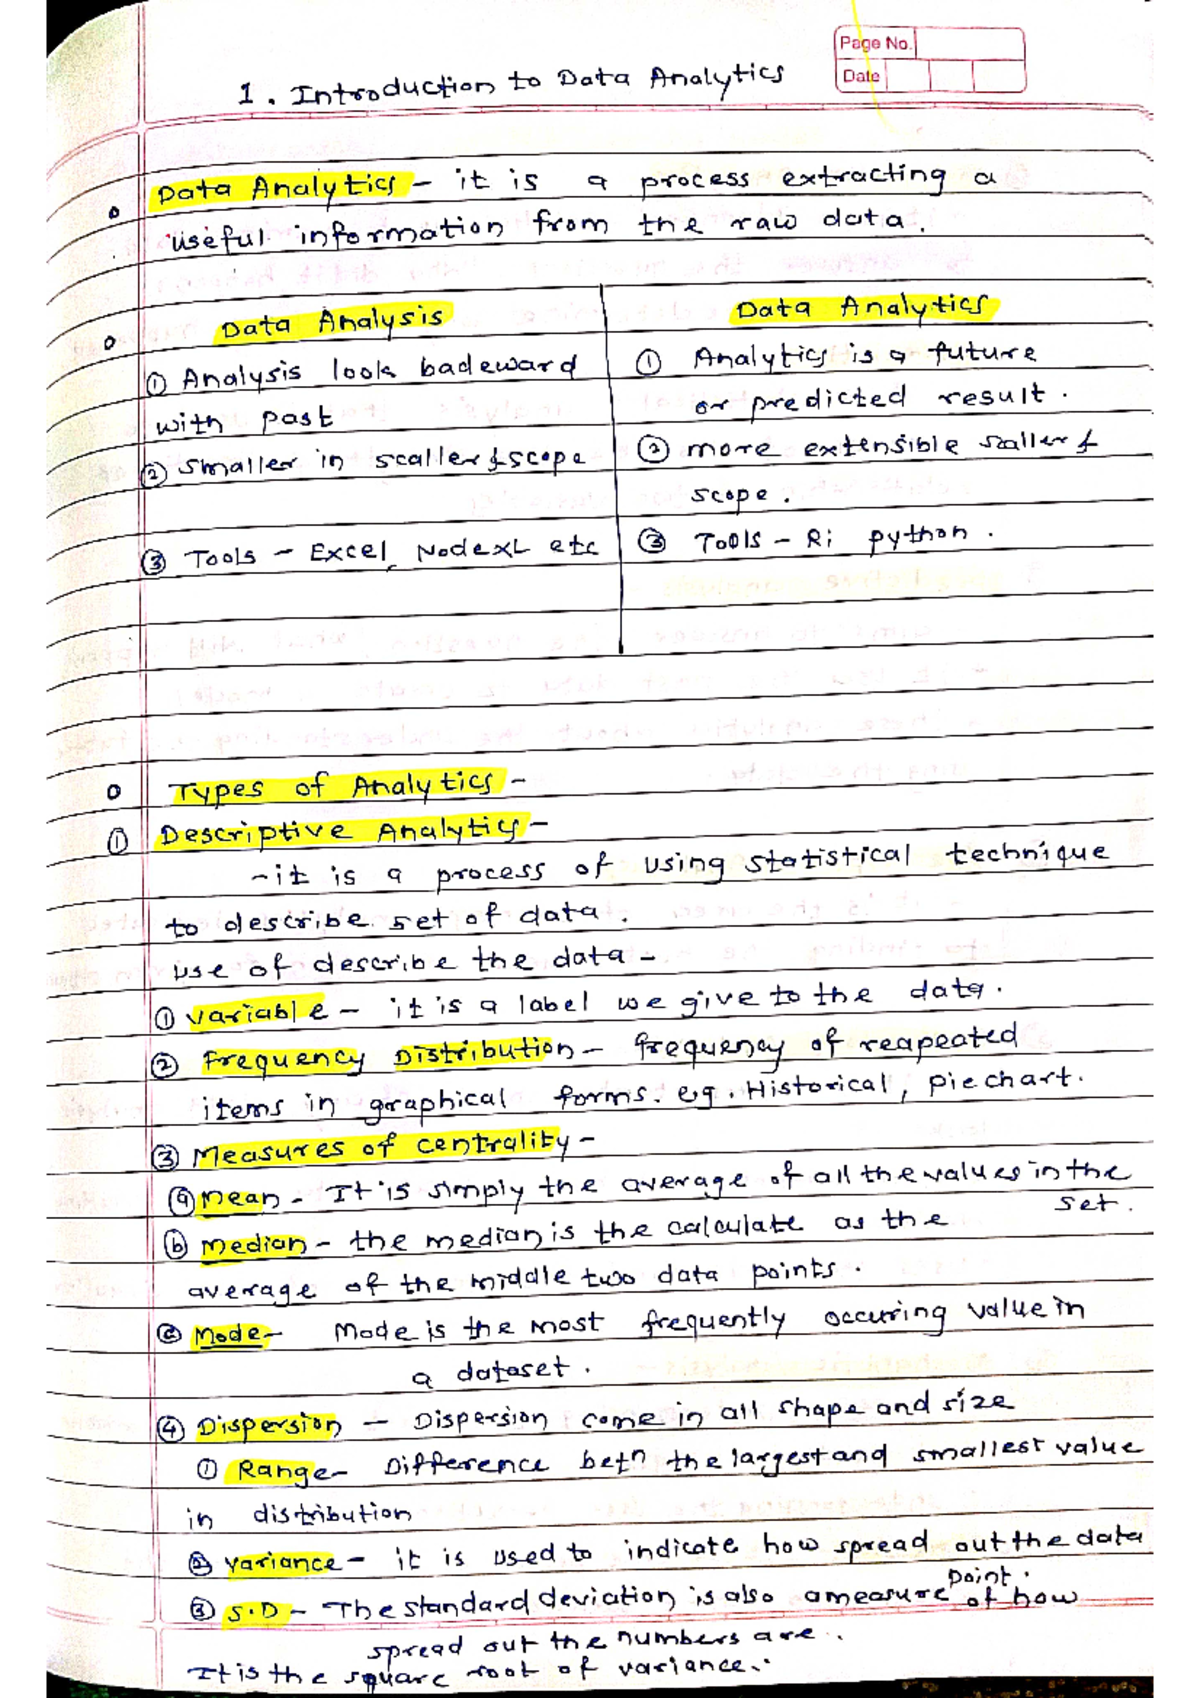 Page No.
Date
1. Introduction to Data Analytics
Data Analytics - it is a process extracting a
useful information from the raw data.
Data Analysis
① Analysis look badeward
with past
② Smaller in scaller & scope
③ Tools - Excel, NodeXL etc
Data Analytics
① Analytics is a future
or predicted result.
② more extensible scaller &
scope.
③ Tools - Ri python.
Types of Analytics -
① Descriptive Analytics -
- it is a process of using statistical technique
to describe set of data.
use of describe the data -
① variable - it is a label we give to the data.
② Frequency Distribution - frequency of reapeated
items in graphical forms. e.g. Historical, pie chart.
③ Measures of centrality -
ⓐ mean - It is simply the average of all the values in the
set.
ⓑ Median - the median is the calculate as the
average of the middle two data points.
ⓒ Mode - Mode is the most frequently occuring value in
a dataset.
④ Dispersion - Dispersion come in all shape and size
① Range - Difference betn the largest and smallest value
in distribution
② variance - it is used to indicate how spread out the data
point.
③ S.D - The standard deviation is also a measure of how
spread out the numbers are.
It is the square root of variance.